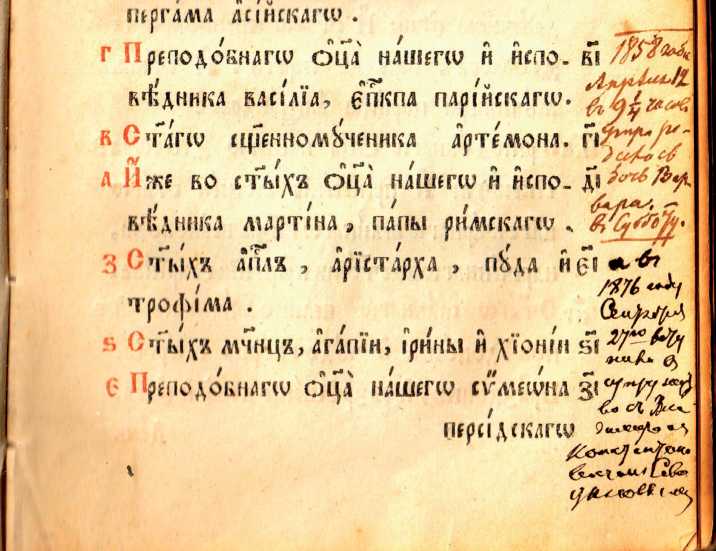 пергама асі́йскагѡ .
г Преподо́бнагѡ ѻ҆ц҃а̀ на́шегѡ и҆ и҆спо- в҃і
вѣ́дника васі́лїа, є҆п҃кпа парі́йскагѡ.
в Ст҃а́гѡ сщ҃енномꙋ́ченика а҆рте́мона. г҃і
а И҆́же во ст҃ы́хъ ѻ҆ц҃а̀ на́шегѡ и҆ и҆спо- д҃і
вѣ́дника марті́на, па́пы ри́мскагѡ .
з Ст҃ы́хъ а҆пⷭ҇лъ , а҆рїста́рха , пꙋ́да и҆ е҃і
трофі́ма .
ѕ Ст҃ы́хъ мч҃нцъ, а҆га́пїи, і҆ри́ны и҆ хїо́нїи ѕ҃і
є Преподо́бнагѡ ѻ҆ц҃а̀ на́шегѡ сѷмеѡ́на з҃і
персі́дскагѡ
1858 года
Апреля 12
в 9 1/4 часов
утра ро-
дочь Вар
вара.
в Субботу.
а в
1876 году
Сентября
27го
супру
во съ
Константино